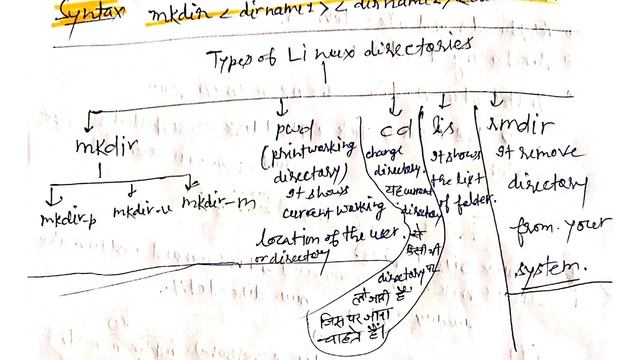 Syntax mkdir < dirname1 > < dirname2
Types of Linux directories
mkdir
mkdir-p mkdir-v mkdir-m
pwd
(print working
directory)
It shows
current working
location of the user.
or directory
cd
change
directory.
यह current
directory से
किसी भी
directory पर
ले जाती है
जिस पर जाना
चाहते हैं।
ls
It shows
the list
of folder.
rmdir
It remove
directory
from your
system.